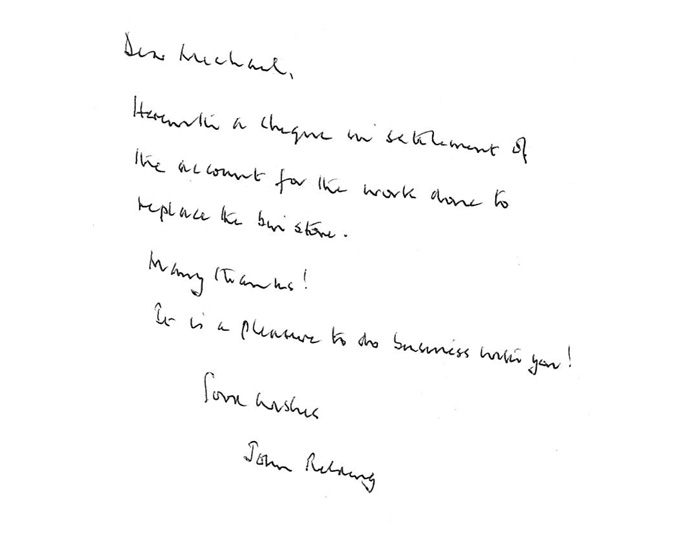 Dear Michael,
Herewith a cheque in settlement of
the account for the work done to
replace the bin store.
Many thanks!
It is a pleasure to do business with you!
wishes
John